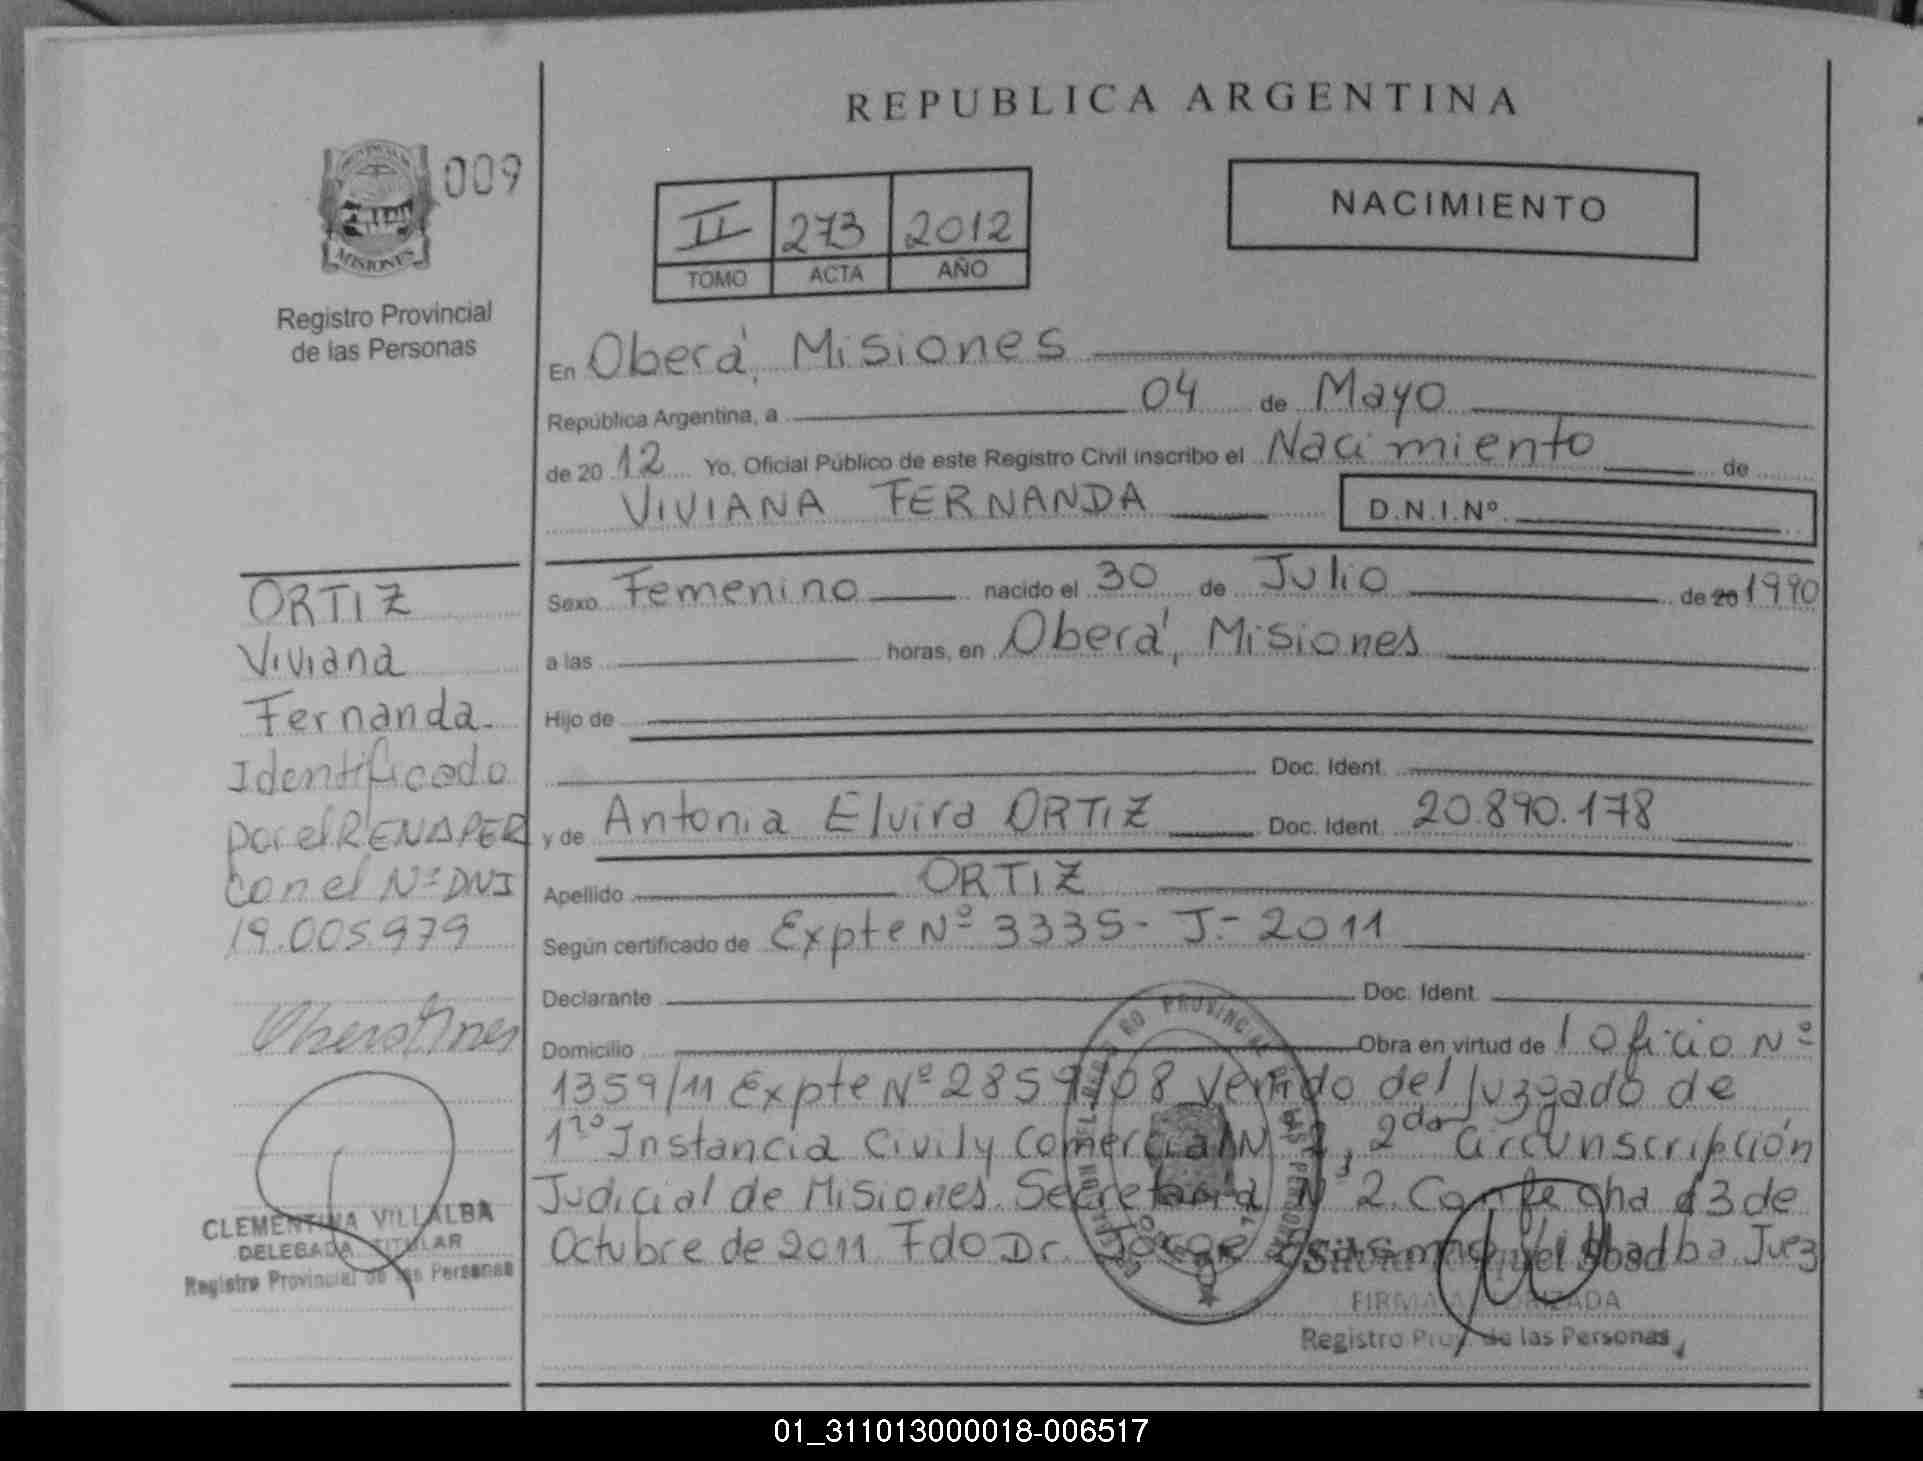 REPUBLICA ARGENTINA
009
MISIONES
Registro Provincial
de las Personas
II 273 2012
TOMO ACTA AÑO
NACIMIENTO
En Oberá, Misiones
República Argentina, a 04 de Mayo
de 20 12 Yo, Oficial Público de este Registro Civil inscribo el Nacimiento de
VIVIANA FERNANDA D.N.I.Nº
Sexo Femenino nacido el 30 de Julio de 20 1990
a las horas, en Oberá, Misiones
Hijo de
Doc. Ident.
y de Antonia Elvira ORTIZ Doc. Ident. 20.890.178
Apellido ORTIZ
Según certificado de Expte Nº 3335- J.- 2011
Declarante Doc. Ident.
Domicilio Obra en virtud de Oficio Nº
1359/11 Expte Nº 2859/08 venido del Juzgado de
1ro Instancia Civil y Comercial N 2, 2da Circunscripción
Judicial de Misiones Secretaria Nº 2. Con fecha 13 de
Octubre de 2011 Fdo Dr. Jorge Villalba. Juez
FIRMA AUTORIZADA
Registro Prov. de las Personas
ORTIZ
Viviana
Fernanda.
Identificado
por el RENAPER
con el Nº DNI
19.005.979
CLEMENTINA VILLALBA
DELEGADA TITULAR
Registro Provincial de las Personas
01_311013000018-006517